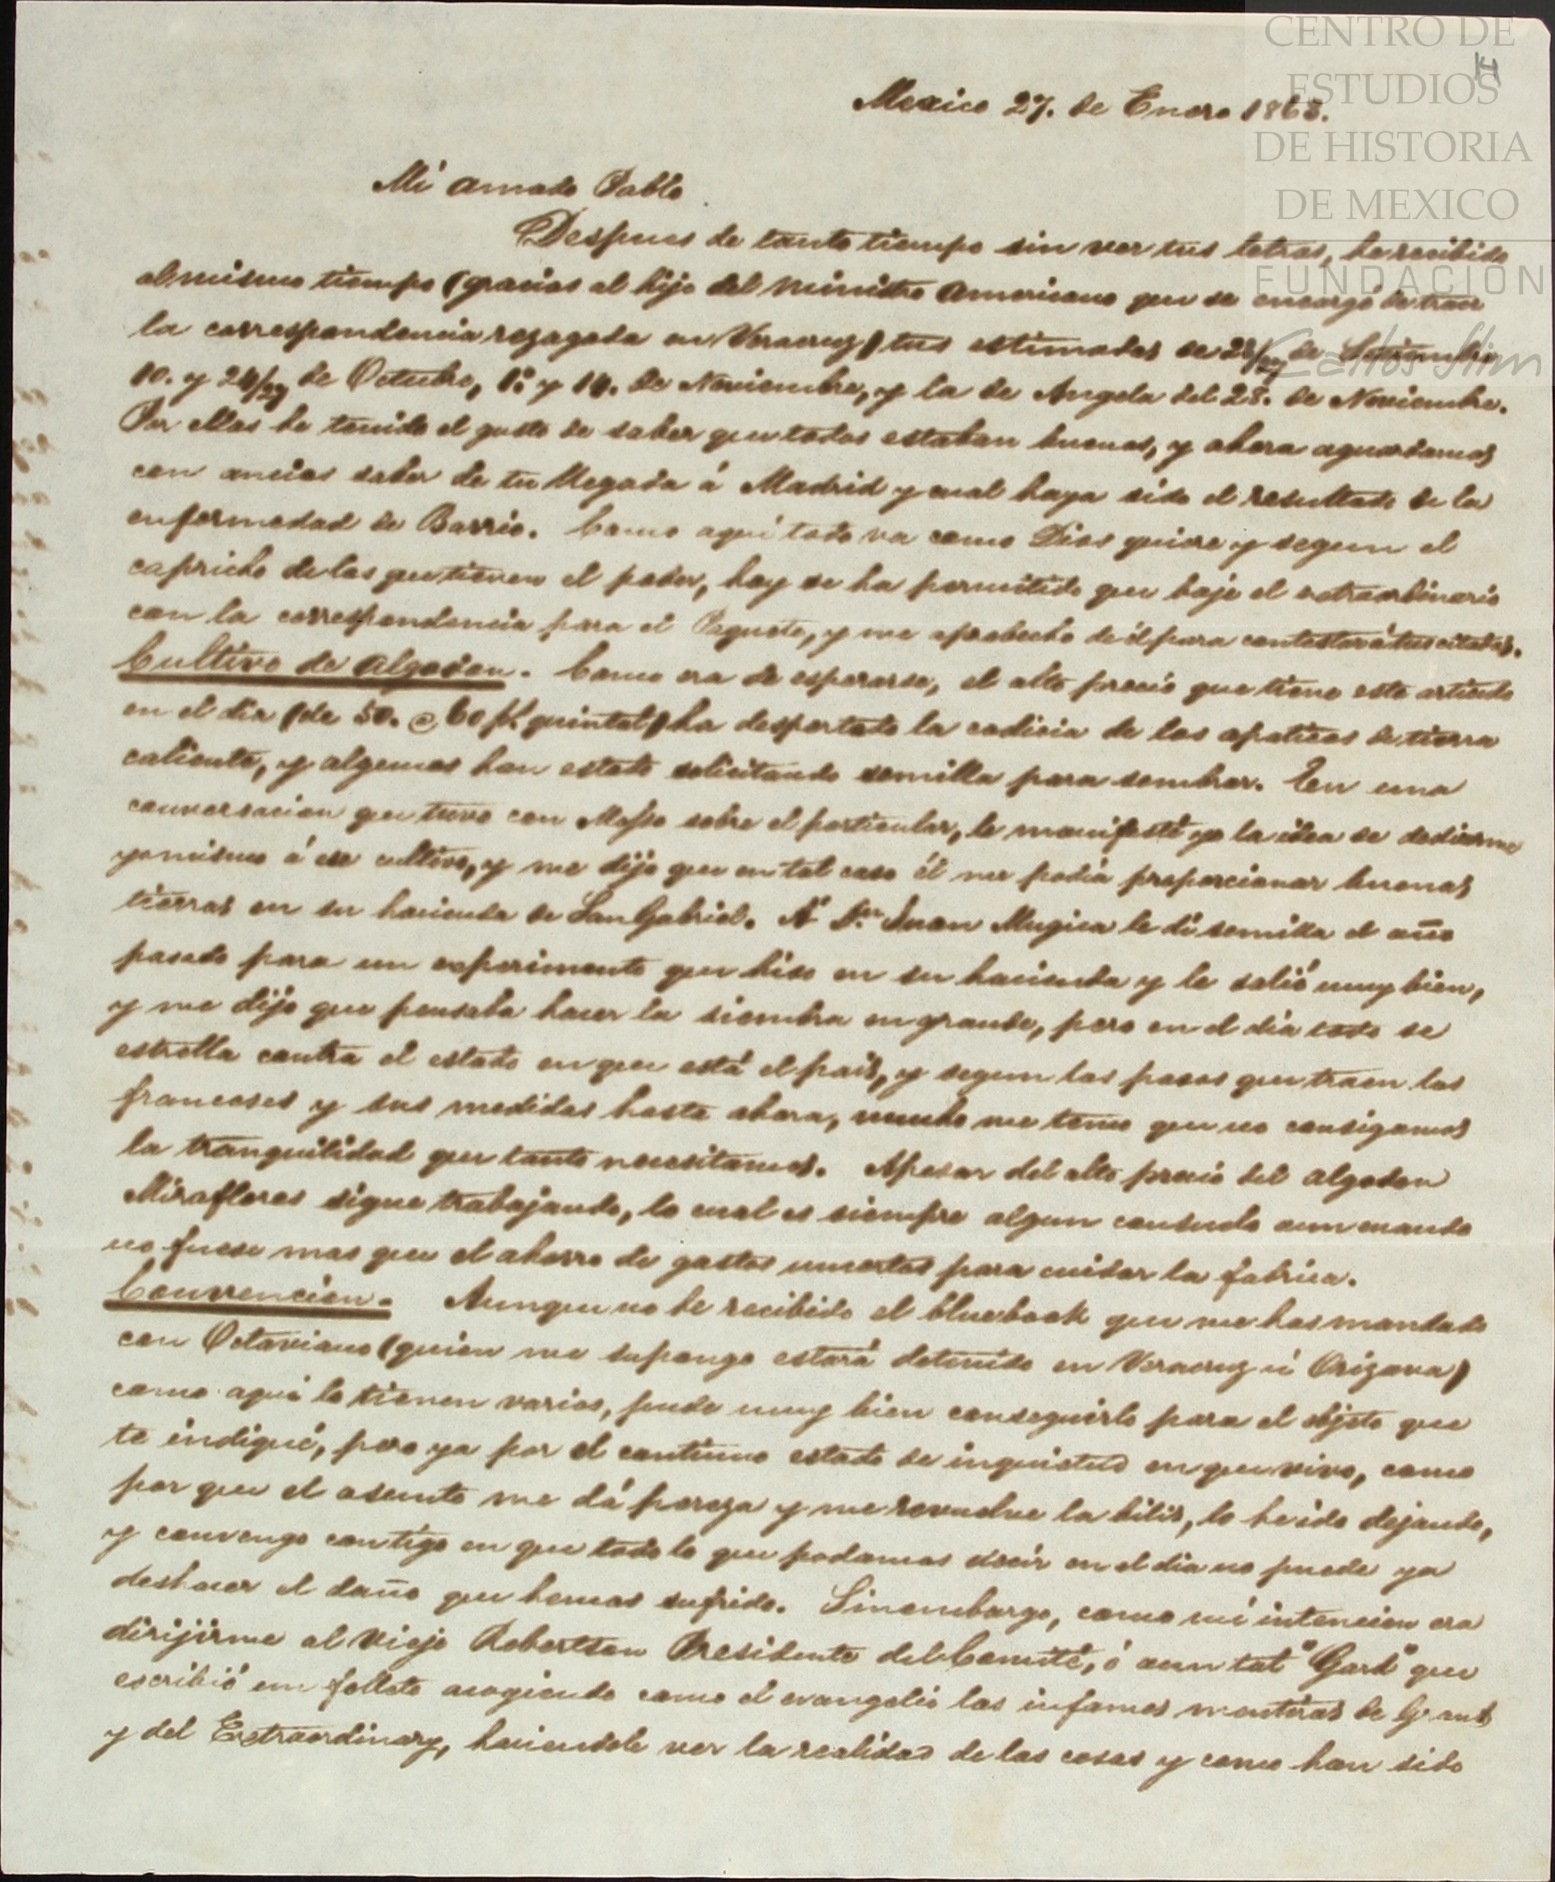 CENTRO DE
ESTUDIOS
DE HISTORIA
DE MEXICO
FUNDACIÓN
Carlos Slim
Mexico 27. de Enero 1863.
Mi amado Pablo
Despues de tanto tiempo sin ver tus letras, he recibido
al mismo tiempo (gracias al hijo del Ministro Americano que se encargó de traer
la correspondencia rezagada en Veracruz) tus estimadas de 28/29 de Setiembre
10. y 24/29 de Octubre, 1.º y 14. de Noviembre, y la de Angela del 28. de Noviembre.
Por ellas he tenido el gusto de saber que todos estaban buenos, y ahora aguardamos
con ancias saber de tu llegada á Madrid y cual haya sido el resultado de la
enfermedad de Barrio. Como aquí todo va como Dios quiere y segun el
capricho de los que tienen el poder, hoy se ha permitido que baje el extraordinario
con la correspondencia para el Paquete, y me aprobecho de él para contestar á tus citadas.
Cultivo de Algodon. Como era de esperarse, el alto precio que tiene este articulo
en el dia (de 50. @ 60 p$ quintal) ha despertado la codicia de los apaticos de tierra
caliente, y algunos han estado solicitando semilla para sembrar. En una
conversacion que tuve con Masso sobre el particular, le manifesté yo la idea de dedicarme
yo mismo á ese cultivo, y me dijo que en tal caso él me podia proporcionar buenas
tierras en su hacienda de San Gabriel. A Dn. Juan Mugica le di semilla el año
pasado para un experimento que hiso en su hacienda y le salió muy bien,
y me dijo que pensaba hacer la siembra en grande, pero en el dia todo se
estrella contra el estado en que está el país, y segun los pasos que traen los
franceses y sus medidas hasta ahora, mucho me temo que no consigamos
la tranquilidad que tanto necesitamos. Apesar del alto precio del algodon
Miraflores sigue trabajando, lo cual es siempre algun consuelo aun cuando
no fuese mas que el ahorro de gastos muertos para cuidar la fabrica.
Convencion. Aunque no he recibido el bluebook que me has mandado
con Octaviano (quien me supongo estará detenido en Veracruz ú Orizava)
como aquí lo tienen varios, pude muy bien conseguirlo para el objeto que
te indiqué, pero ya por el continuo estado de inquietud en que vivo, como
por que el asunto me dá pereza y me revuelve la bilis, lo he ido dejando,
y convengo contigo en que todo lo que podamos decir en el dia no puede ya
deshacer el daño que hemos sufrido. Sinembargo, como mi intencion era
dirijirme al viejo Robertson Presidente del Comité, ó a un tal "Gard" que
escribió un folleto acogiendo como el evangelio las infames mentiras de Grant
y del Extraordinary, haciendole ver la realidad de las cosas y como han sido